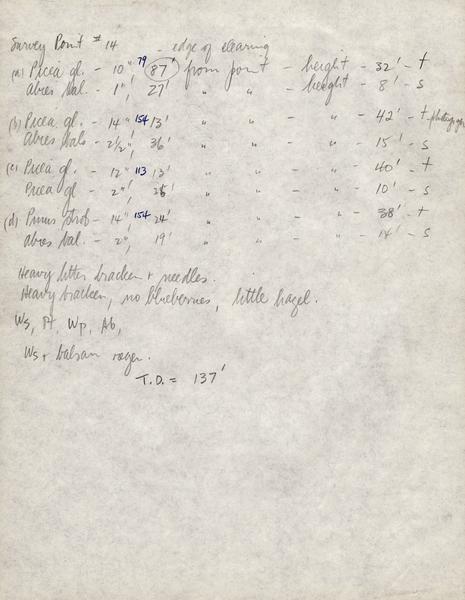 Survey Point # 14 - edge of clearing
(a) Picea gl. - 10" 79 87' from point - height - 32' - t
abies bal. - 1", 27' " " - height - 8' - s
(b) Picea gl. - 14" 154 13' " " - " - 42' - t
abies bals - 2½", 36' " " - " - 15' - s
(c) Picea gl. - 12" 113 13' " " - " - 40' - t
Picea gl - 2", " " - " - 10' - s
(d) Pinus strob - 14" 154 24' " " - " - 38' - t
abies bal. - 2", 19' " " - " - 14' - s
Heavy litter bracken + needles.
Heavy bracken, no blueberries, little hazel.
Ws, Pt, Wp, Ab,
Ws + balsam
T.D. = 137'